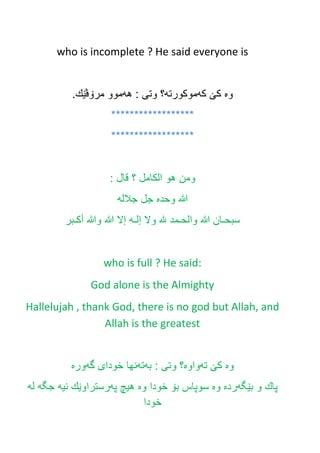 who is incomplete ? He said everyone is
وە کێ کەموکورتە؟ وتى : هەموو مرۆڤێك.
******************
******************
ومن هو الكامل ؟ قال :
الله وحده جل جلاله
سبحـان الله والحـمد لله ولا إلـه إلا الله والله أكـبر
who is full ? He said:
God alone is the Almighty
Hallelujah , thank God, there is no god but Allah, and
Allah is the greatest
وە کێ تەواوە؟ وتى : بەتەنها خوداى گەورە
پاك و بێگەردە وە سوپاس بۆ خودا وە هیچ پەرستراوێك نیە جگە لە
خودا